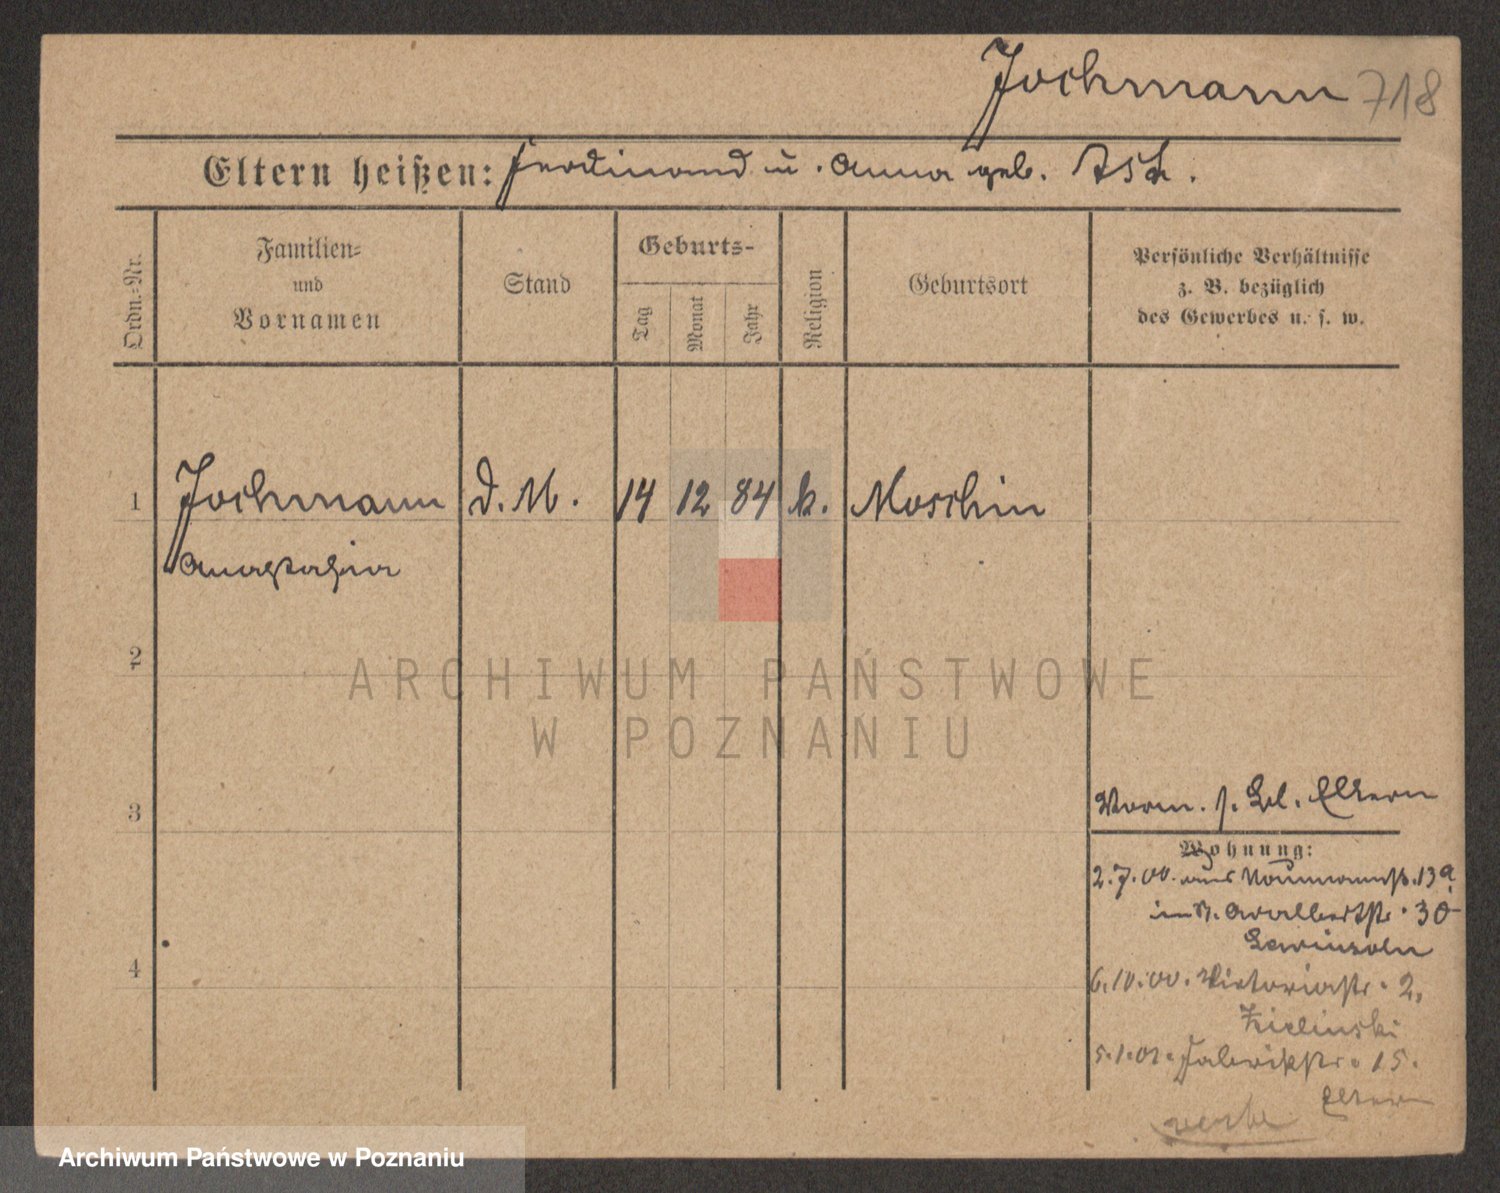 Jochmann 718
Eltern heißen: Ferdinand u. Anna geb. Asch.
Ordn.-Nr.
Familien-
und
Vornamen
Stand
Geburts-
Tag
Monat
Jahr
Religion
Geburtsort
Persönliche Verhältnisse
z. B. bezüglich
des Gewerbes u. s. w.
1 Jochmann d. M. 14 12 84 k. Moschin
Anastasia
2
ARCHIWUM PAŃSTWOWE
W POZNANIU
3
Vorm. s. Eltern
Wohnung:
2.7.00. aus Naumannstr. 13a
in St. Adalbertstr. 30
4
6.10.00. Viktoriastr. 2,
Zielinski
5.1.01. Fabrikstr. 15.
Eltern
Archiwum Państwowe w Poznaniu